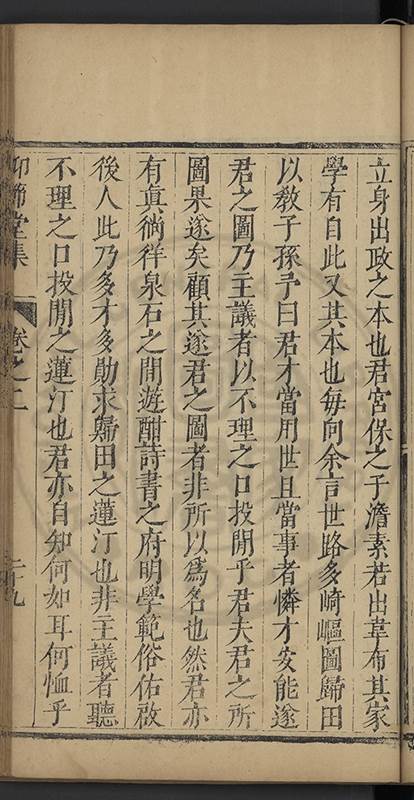 立身出政之本也君宮保之子澹素若出韋布其家
學有自此又其本也每向余言世路多崎嶇圖歸田
以敎子孫予曰君才當用世且當事者憐才安能遂
君之圖乃主議者以不理之口投閒乎君夫君之所
圖果遂矣顧其遂君之圖者非所以爲名也然君亦
有眞徜徉泉石之間遊酣詩書之府明學範俗佑啟
後人此乃多才多勛求歸田之蓮汀也非主議者聽
不理之口投閒之蓮汀也君亦自知何如耳何恤乎
仰節堂集
卷之二
二十九